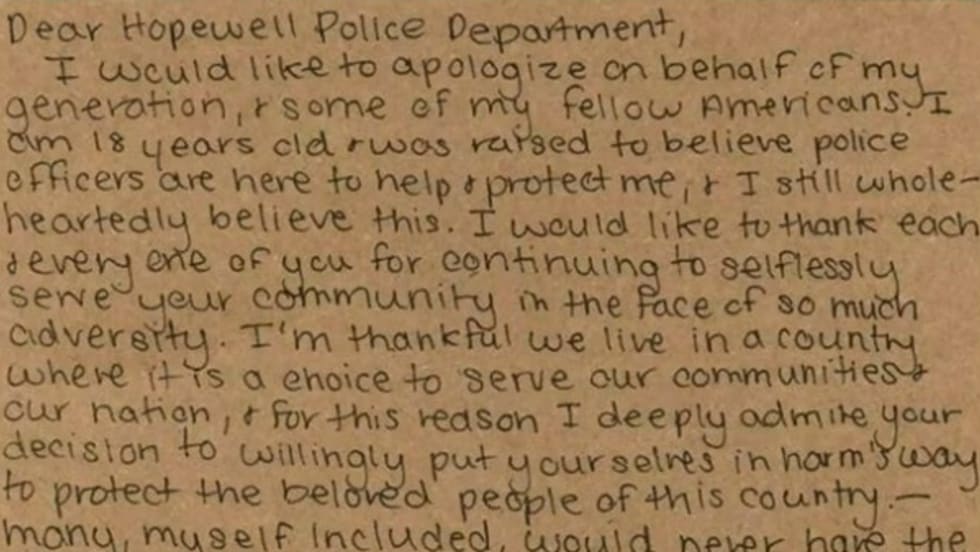 Dear Hopewell Police Department,
I would like to apologize on behalf of my
generation, & some of my fellow Americans. I
am 18 years old & was raised to believe police
officers are here to help & protect me, & I still whole-
heartedly believe this. I would like to thank each
& every one of you for continuing to selflessly
serve your community in the face of so much
adversity. I'm thankful we live in a country
where it is a choice to serve our communities &
our nation, & for this reason I deeply admire your
decision to willingly put yourselves in harm's way
to protect the beloved people of this country. —
many, myself included, would never have the